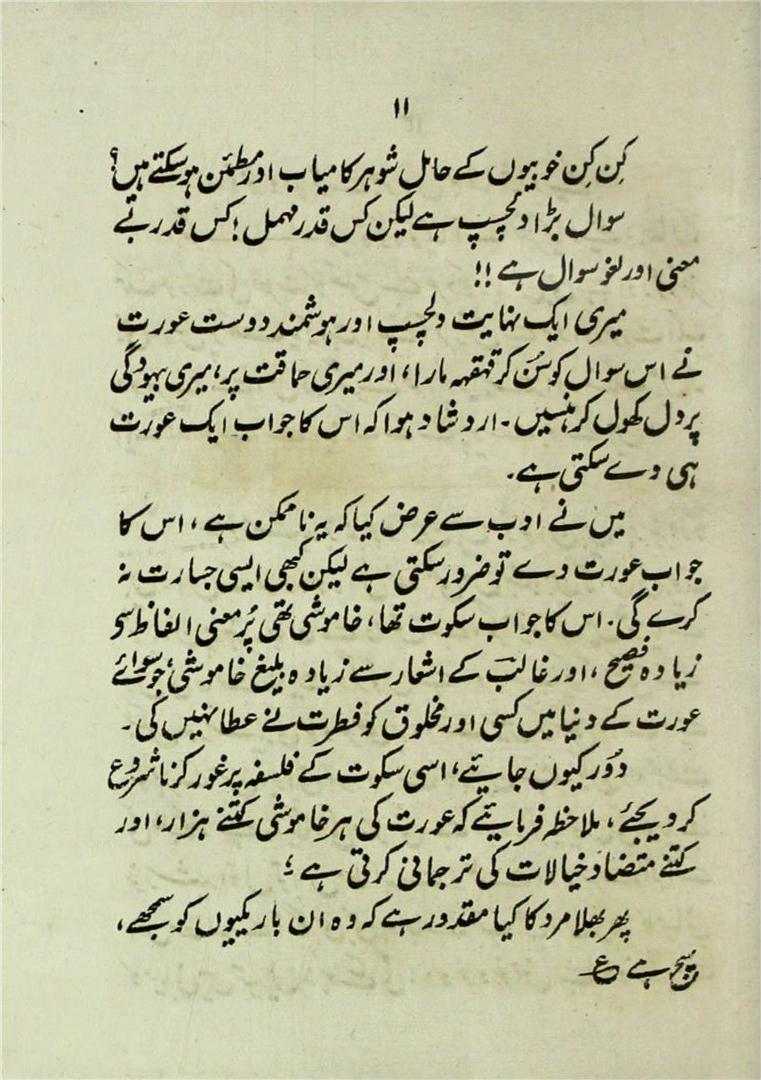 ۱۱
کِن کِن خوبیوں کے حامل شوہر کامیاب اور مطمئن ہوسکتے ہیں؟
سوال بڑا دلچسپ ہے لیکن کس قدر مہمل! کس قدر بے
معنی اور لغو سوال ہے!!
میری ایک نہایت دلچسپ اور ہوشمند دوست عورت
نے اس سوال کو سُن کر قہقہہ مارا، اور میری حماقت پر، میری بیہودگی
پر دل کھول کر ہنسیں۔ ارشاد ہوا کہ اس کا جواب ایک عورت
ہی دے سکتی ہے۔
میں نے ادب سے عرض کیا کہ یہ ناممکن ہے، اس کا
جواب عورت دے تو ضرور سکتی ہے لیکن کبھی ایسی جسارت نہ
کرے گی۔ اس کا جواب سکوت تھا، خاموشی تھی پُرمعنی الفاظ سو
زیادہ فصیح، اور غالبؔ کے اشعار سے زیادہ بلیغ خاموشی، جو سوائے
عورت کے دنیا میں کسی اور مخلوق کو فطرت نے عطا نہیں کی۔
دُور کیوں جایئے، اسی سکوت کے فلسفہ پر غور کرنا شروع
کر دیجئے، ملاحظہ فرمایئے کہ عورت کی ہر خاموشی کتنے ہزار، اور
کتنے متضاد خیالات کی ترجمانی کرتی ہے؛
پھر بھلا مرد کا کیا مقدور ہے کہ وہ ان باریکیوں کو سمجھے،
سچ ہے ع